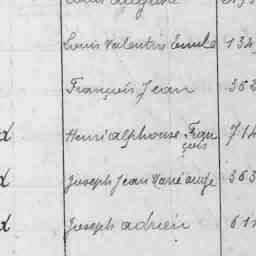 Louis Valentin Emile 134
François Jean 363
d Henri alphonse Fran 714
çois
d Joseph Jean Marie ange 363
d Joseph adrien 611